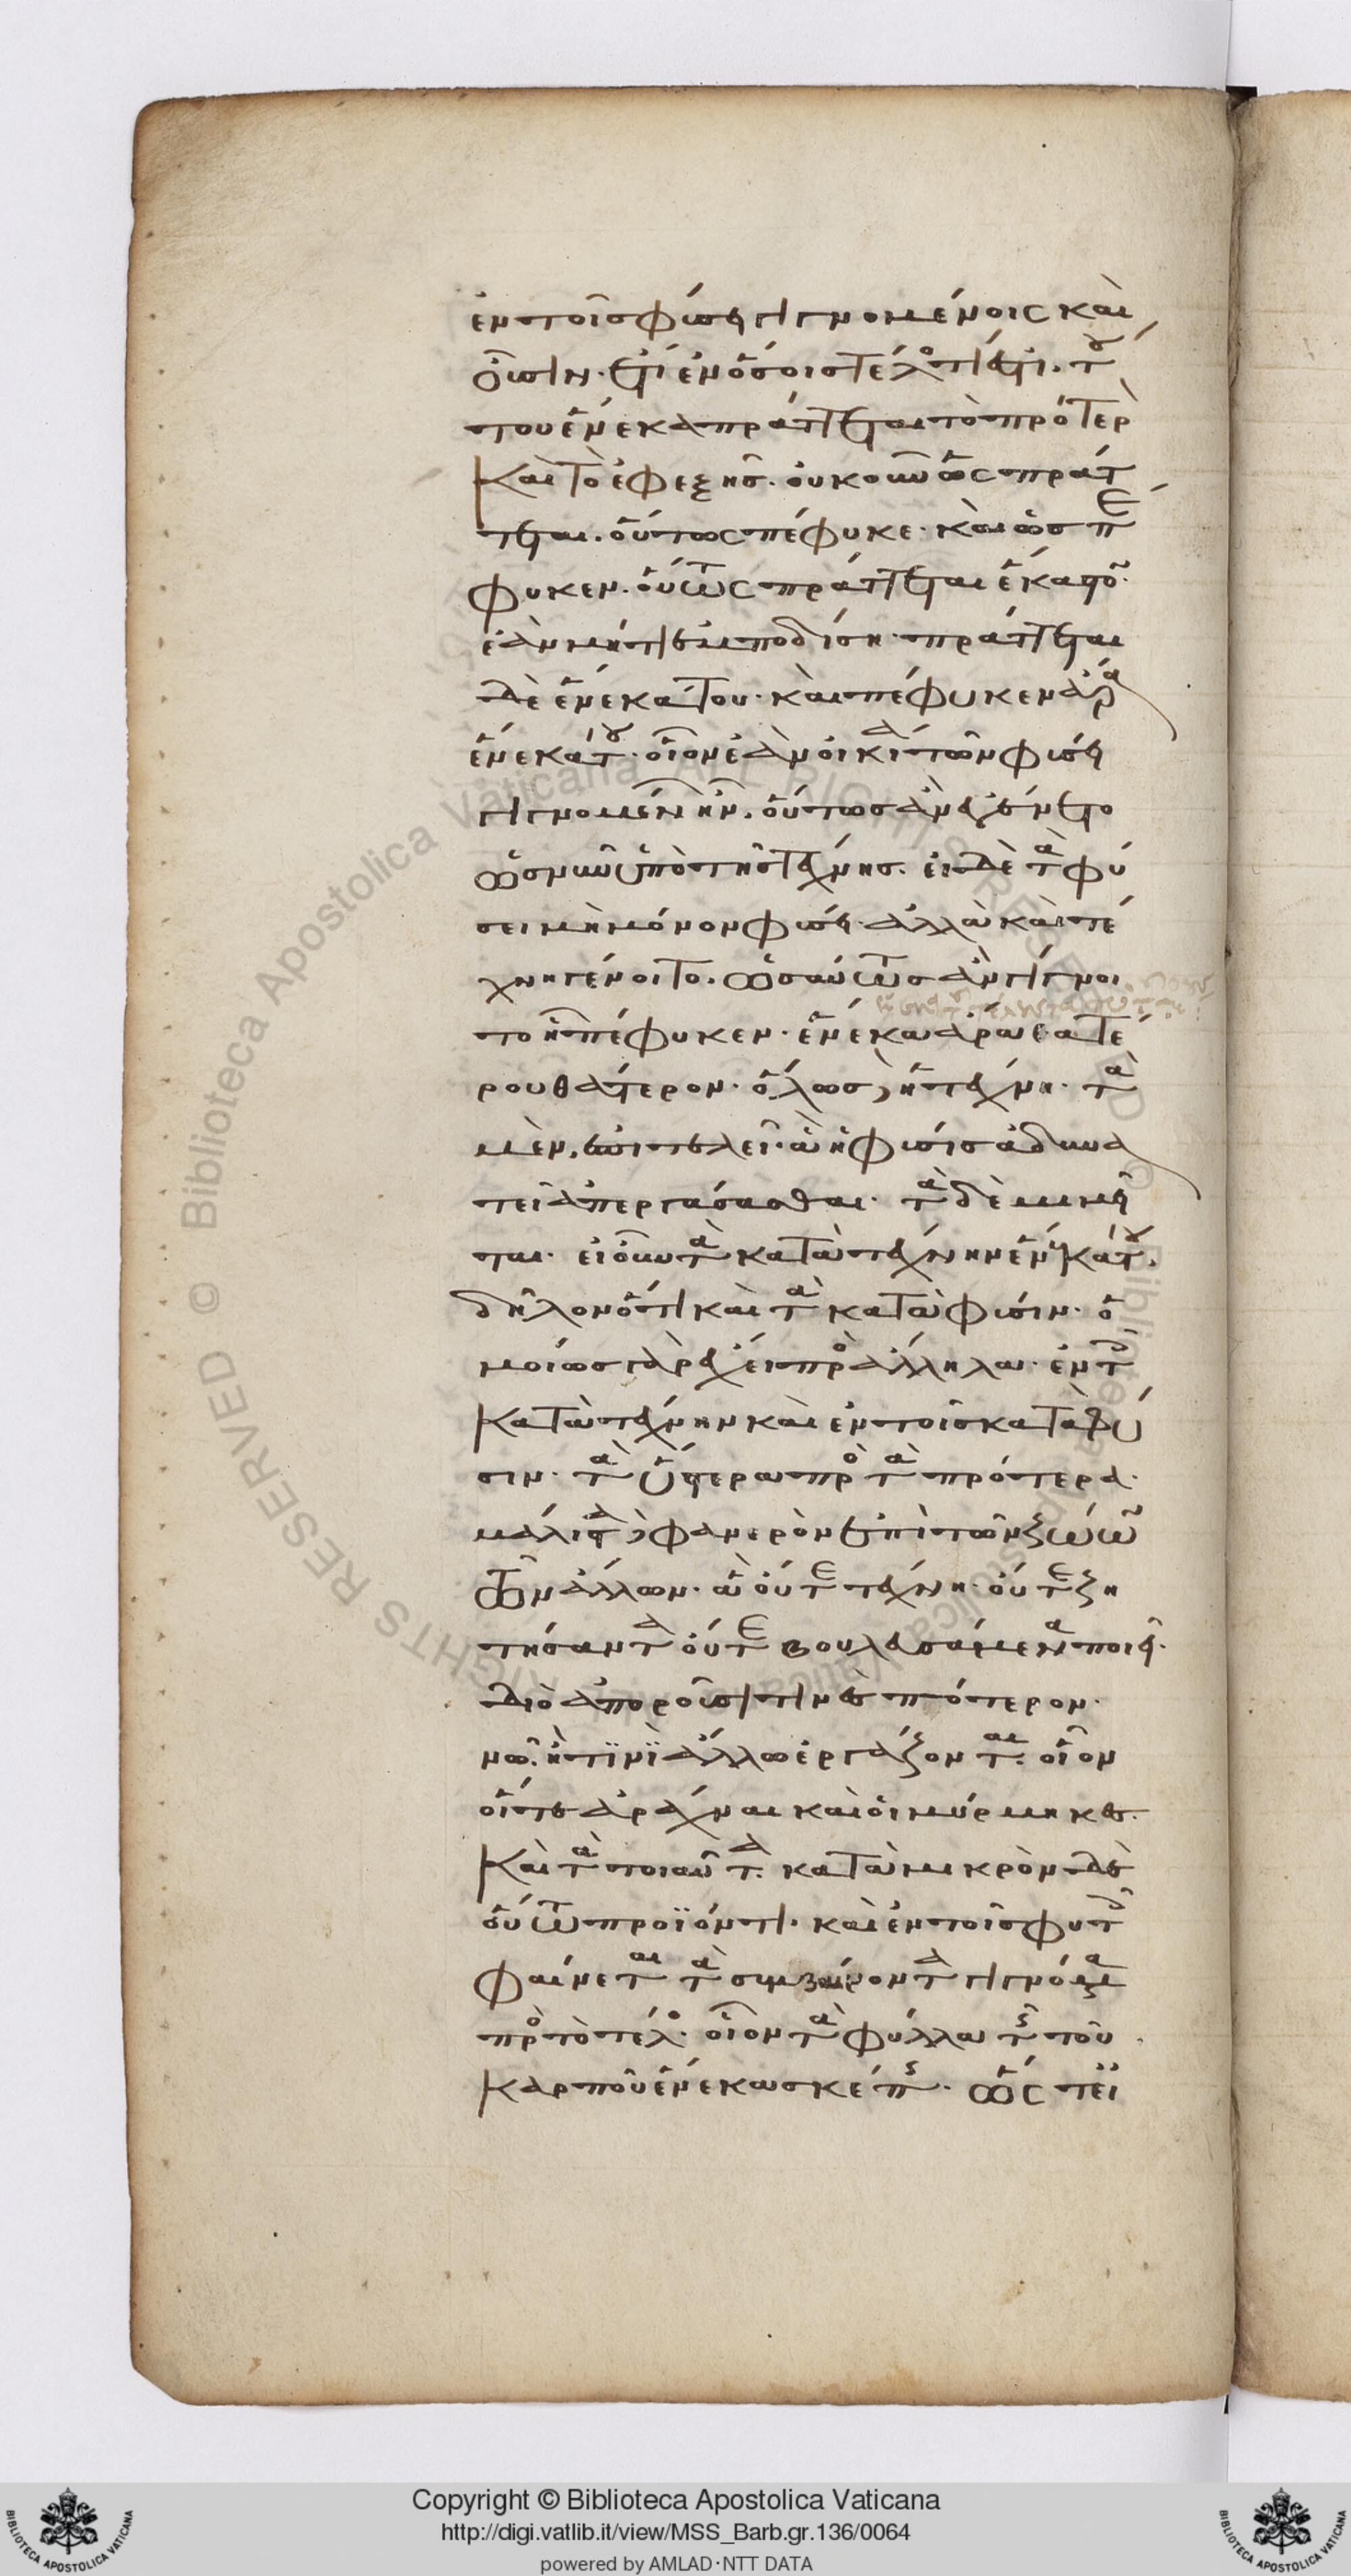 ἐν τοῖς φύσει γιγνομένοις καὶ
οὖσιν. ἔτι ἐν ὅσοις τέλος τί ἐστι. τού
του ἕνεκα πράττεται τὸ πρότερον
καὶ τὸ ἐφεξῆς. οὐκοῦν ὡς πράτ
τεται. οὕτως πέφυκε. καὶ ὡς πέ
φυκεν. οὕτως πράττεται ἕκαστον.
ἐὰν μή τι ἐμποδίσῃ. πράττεται
δὲ ἕνεκά του. καὶ πέφυκεν ἄρα
ἕνεκά του. οἷον εἰ ἀνοικία τῶν φύσει
γιγνομένων ἦν. οὕτως ἂν ἐγένετο
ὡς νῦν ὑπὸ τῆς τέχνης. εἰ δὲ τὰ φύ
σει μὴ μόνον φύσει. ἀλλὰ καὶ τέ
χνῃ γένοιτο. ὡσαύτως ἂν γίγνοι
το ᾗ πέφυκεν. ἕνεκα ἄρα θατέ
ρου θάτερον. ὅλως δὲ ἡ τέχνη. τὰ
μὲν ἐπιτελεῖ. ἃ ἡ φύσις ἀδυνα
τεῖ ἀπεργάσασθαι. τὰ δὲ μιμεῖ
ται. εἰ οὖν τὰ κατὰ τέχνην ἕνεκά του.
δῆλον ὅτι καὶ τὰ κατὰ φύσιν. ὁ
μοίως γὰρ ἔχει πρὸς ἄλληλα. ἐν τοῖς
κατὰ τέχνην καὶ ἐν τοῖς κατὰ φύ
σιν. τὰ ὕστερα πρὸς τὰ πρότερα.
μάλιστα δὲ φανερὸν ἐπὶ τῶν ζώων
τῶν ἄλλων. ἃ οὔτε τέχνῃ. οὔτε ζη
τήσαντα οὔτε βουλευσάμενα ποιεῖ.
διὸ ἀποροῦσί τινες πότερον.
νῷ. ἤ τινι ἄλλῳ ἐργάζονται. οἷον
οἵ τε ἀράχναι καὶ οἱ μύρμηκες.
καὶ τὰ τοιαῦτα. κατὰ μικρὸν δὲ
οὕτω προϊόντι. καὶ ἐν τοῖς φυτοῖς
φαίνεται τὰ συμφέροντα γιγνόμενα
πρὸς τὸ τέλος. οἷον τὰ φύλλα τῆς τοῦ
καρποῦ ἕνεκα σκέπης. ὥστ' εἰ